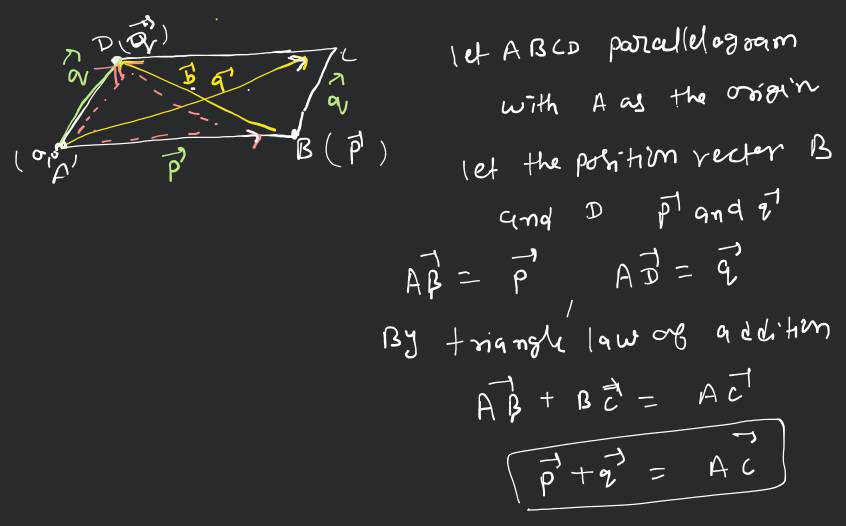 D(q⃗)
C
q⃗
b⃗
a⃗
q⃗
(0,0)
A
p⃗
B (p⃗)
let ABCD parallelogram
with A as the origin
let the position vector B
and D p⃗ and q⃗
AB⃗ = p⃗ AD⃗ = q⃗
By triangle law of addition
AB⃗ + BC⃗ = AC⃗
p⃗ + q⃗ = AC⃗